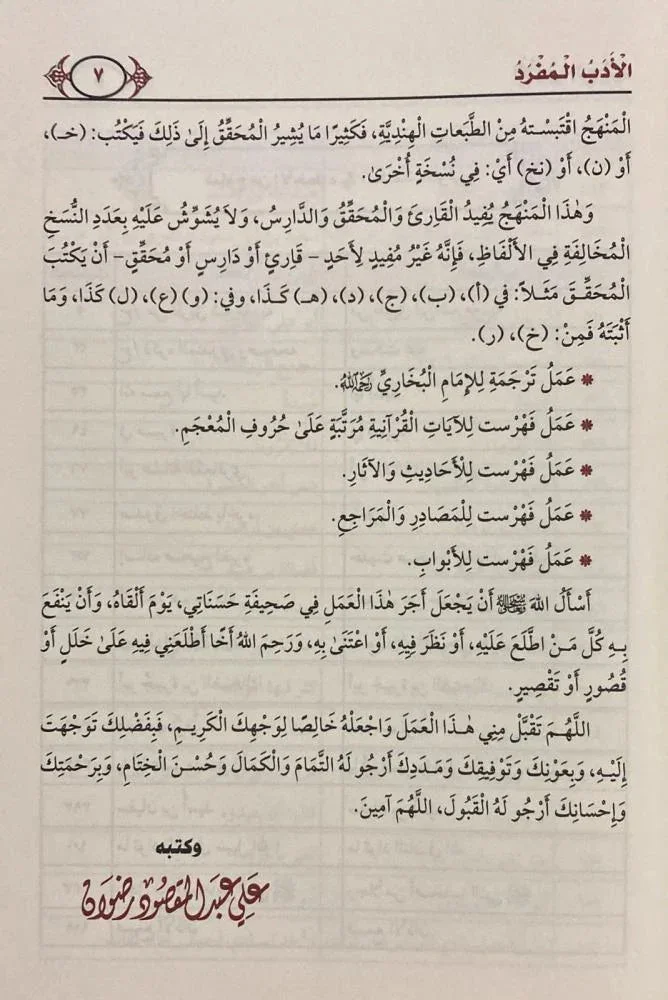 الْأَدَبُ الْمُفْرَدُ
٧
الْمَنْهَجُ اقْتَبَسْتهُ مِنْ الطَّبَعاتِ الْهِنْدِيَّةِ، فَكَثِيرًا مَا يُشِيرُ الْمُحَقِّقُ إِلَىٰ ذَلِكَ فَيَكْتُب: (خـ)،
أَوْ (ن)، أَوْ (نخ) أَيْ: فِي نُسْخَةٍ أُخْرَىٰ.
وَهَٰذَا الْمَنْهَجُ يُفِيدُ الْقَارِئَ وَالْمُحَقِّقُ وَالدَّارِسُ، وَلَا يُشَوِّشُ عَلَيْهِ بِعَدَدِ النُّسَخِ
الْمُخَالِفَةِ فِي الْأَلْفَاظِ، فَإِنَّهُ غَيْرُ مُفِيدٍ لِأَحَدٍ - قَارِئٍ أَوْ دَارِسٍ أَوْ مُحَقِّقٍ - أَنْ يَكْتُبَ
الْمُحَقِّقَ مَثَلاً: في (أ)، (ب)، (ج)، (د)، (هـ) كَذَا، وفي: (و) (ع)، (ل) كَذَا، وَمَا
أَثْبَتَهُ فَمِنْ: (خ)، (ر).
* عَمَلُ تَرْجَمَةٍ لِلْإِمَامِ الْبُخَارِيِّ رَحِمَهُ اللهُ.
* عَمَلُ فَهْرَست لِلآيَاتِ الْقُرْآنِيةِ مُرَتَّبَةٍ عَلَىٰ حُرُوفِ الْمُعْجَمِ.
* عَمَلُ فَهْرَست لِلْأَحَادِيثِ وَالآثَارِ.
* عَمَلُ فَهْرَست لِلْمَصَادِرِ وَالْمَرَاجِعِ.
* عَمَلُ فَهْرَست لِلْأَبْوَابِ.
أَسْأَلُ اللهَ ﷻ أَنْ يَجْعَلَ أَجَرَ هَٰذَا الْعَمَلِ فِي صَحِيفَةِ حَسَنَاتِي، يَوْمَ أَلْقَاهُ، وَأَنْ يَنْفَعَ
بِهِ كُلَّ مَنْ اطَّلَعَ عَلَيْهِ، أَوْ نَظَرَ فِيهِ، أَوْ اعْتَنَىٰ بِهِ، وَرَحِمَ اللهُ أَخًا أَطْلَعَنِي فِيهِ عَلَىٰ خَلَلٍ أَوْ
قُصُورٍ أَوْ تَقْصِيرٍ.
اللَّهُمَّ تَقَبَّلْ مِنِي هَٰذَا الْعَمَلَ وَاجْعَلْهُ خَالِصًا لِوَجْهِكَ الْكَرِيمِ، فَبِفَضْلِكَ تَوَجَّهَتَ
إِلَيْهِ، وَبِعَوْنِكَ وَتَوْفِيقِكَ وَمَدَدِكَ أَرْجُو لَهُ التَّمَامَ وَالْكَمَالَ وَحُسْنَ الْخِتَامِ، وَبِرَحْمَتِكَ
وَإِحْسَانِكَ أَرْجُو لَهُ الْقَبُولَ، اللَّهُمَ آمِينَ.
وكتبه
علي عبد المقصود رضوان